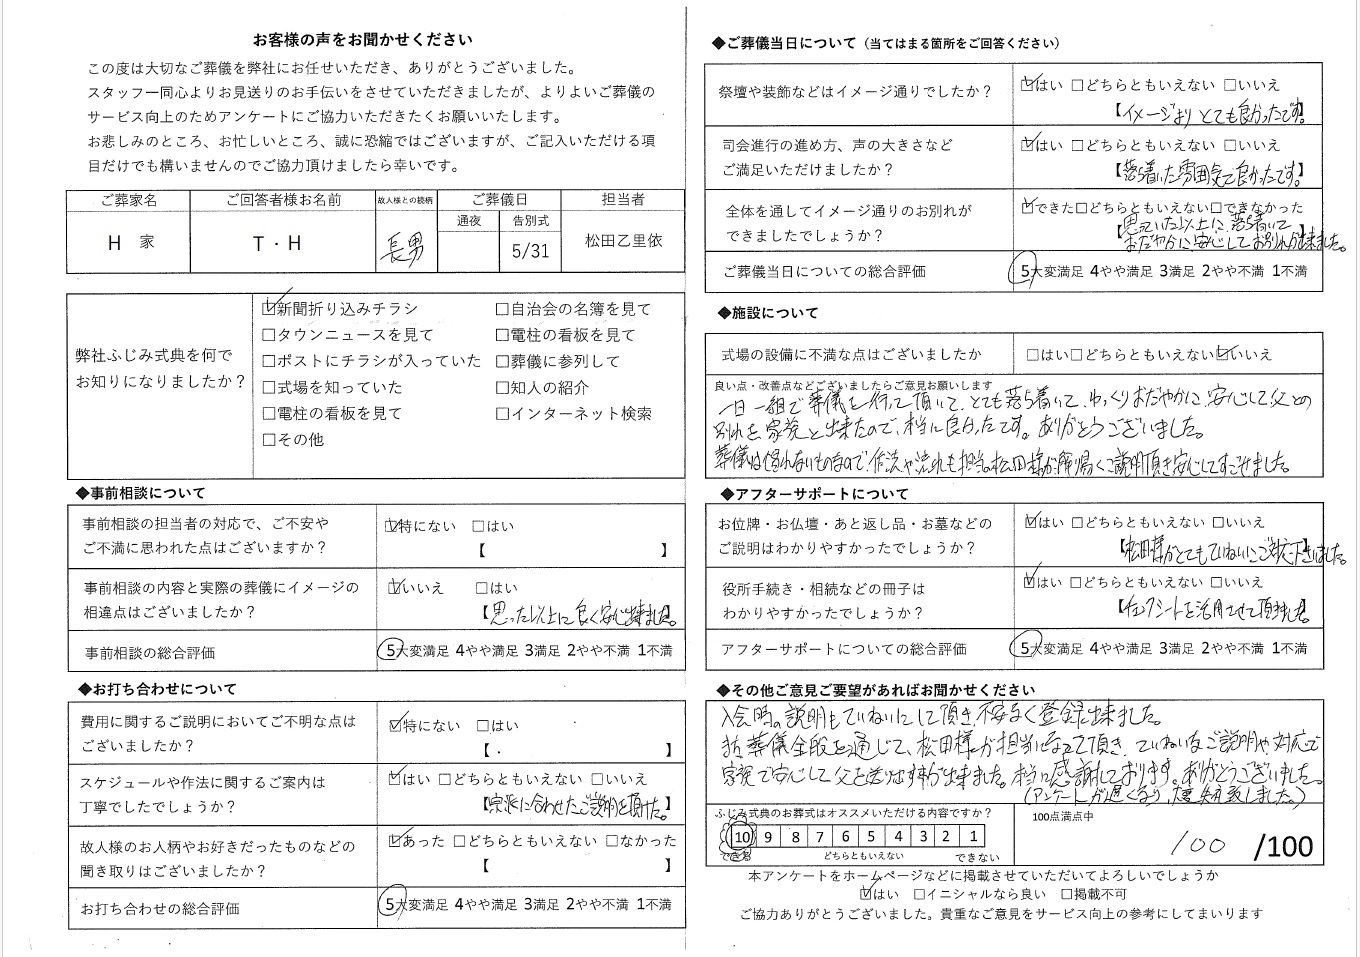 お客様の声をお聞かせください
この度は大切なご葬儀を弊社にお任せいただき、ありがとうございました。
スタッフ一同心よりお見送りのお手伝いをさせていただきましたが、よりよいご葬儀の
サービス向上のためアンケートにご協力いただきたくお願いいたします。
お悲しみのところ、お忙しいところ、誠に恐縮ではございますが、ご記入いただける項
目だけでも構いませんのでご協力頂けましたら幸いです。
ご葬家名 ご回答者様お名前 故人様との続柄 ご葬儀日 担当者
通夜 告別式
H 家 T・H 長男 5/31 松田乙里依
弊社ふじみ式典を何で
お知りになりましたか？
☑新聞折り込みチラシ □自治会の名簿を見て
□タウンニュースを見て □電柱の看板を見て
□ポストにチラシが入っていた □葬儀に参列して
□式場を知っていた □知人の紹介
□電柱の看板を見て □インターネット検索
□その他
◆事前相談について
事前相談の担当者の対応で、ご不安や
ご不満に思われた点はございますか？
☑特にない □はい
【 】
事前相談の内容と実際の葬儀にイメージの
相違点はございましたか？
☑いいえ □はい
【思った以上に良く安心出来ました。】
事前相談の総合評価 5大変満足 4やや満足 3満足 2やや不満 1不満
◆お打ち合わせについて
費用に関するご説明においてご不明な点は
ございましたか？
☑特にない □はい
【 】
スケジュールや作法に関するご案内は
丁寧でしたでしょうか？
☑はい □どちらともいえない □いいえ
【宗派に合わせたご説明を頂けた。】
故人様のお人柄やお好きだったものなどの
聞き取りはございましたか？
☑あった □どちらともいえない □なかった
【 】
お打ち合わせの総合評価 5大変満足 4やや満足 3満足 2やや不満 1不満
◆ご葬儀当日について（当てはまる箇所をご回答ください）
祭壇や装飾などはイメージ通りでしたか？
☑はい □どちらともいえない □いいえ
【イメージよりとても良かったです。】
司会進行の進め方、声の大きさなど
ご満足いただけましたか？
☑はい □どちらともいえない □いいえ
【落ち着いた雰囲気で良かったです。】
全体を通してイメージ通りのお別れが
できましたでしょうか？
☑できた□どちらともいえない□できなかった
【思っていた以上に、落ち着いて
おだやかに安心してお別れが出来ました。
ご葬儀当日についての総合評価 5大変満足 4やや満足 3満足 2やや不満 1不満
◆施設について
式場の設備に不満な点はございましたか □はい□どちらともいえない☑いいえ
良い点・改善点などございましたらご意見お願いします
一日一組で葬儀を行って頂いて、とても落ち着いて、ゆっくりおだやかに、安心して父との
別れを家族と出来たので、本当に良かったです。ありがとうございました。
葬儀は慣れないものなので、作法や流れも担当の松田様が解り易くご説明頂き安心してすごせました。
◆アフターサポートについて
お位牌・お仏壇・あと返し品・お墓などの
ご説明はわかりやすかったでしょうか？
☑はい □どちらともいえない □いいえ
【松田様がとてもていねいにご対応下さいました。
役所手続き・相続などの冊子は
わかりやすかったでしょうか？
☑はい □どちらともいえない □いいえ
【チェックシートを活用させて頂きました。】
アフターサポートについての総合評価 5大変満足 4やや満足 3満足 2やや不満 1不満
◆その他ご意見ご要望があればお聞かせください
入会時の説明もていねいにして頂き、不安なく登録出来ました。
また葬儀全般を通じて、松田様が担当になって頂き、ていねいなご説明や、対応で
家族で安心して父を送りだす事が出来ました。本当に感謝しております。ありがとうございました。
(アンケートが遅くなり、大変失礼致しました。)
ふじみ式典のお葬式はオススメいただける内容ですか？
10 9 8 7 6 5 4 3 2 1
できる どちらともいえない できない
100点満点中
100 /100
本アンケートをホームページなどに掲載させていただいてよろしいでしょうか
☑はい □イニシャルなら良い □掲載不可
ご協力ありがとうございました。貴重なご意見をサービス向上の参考にしてまいります